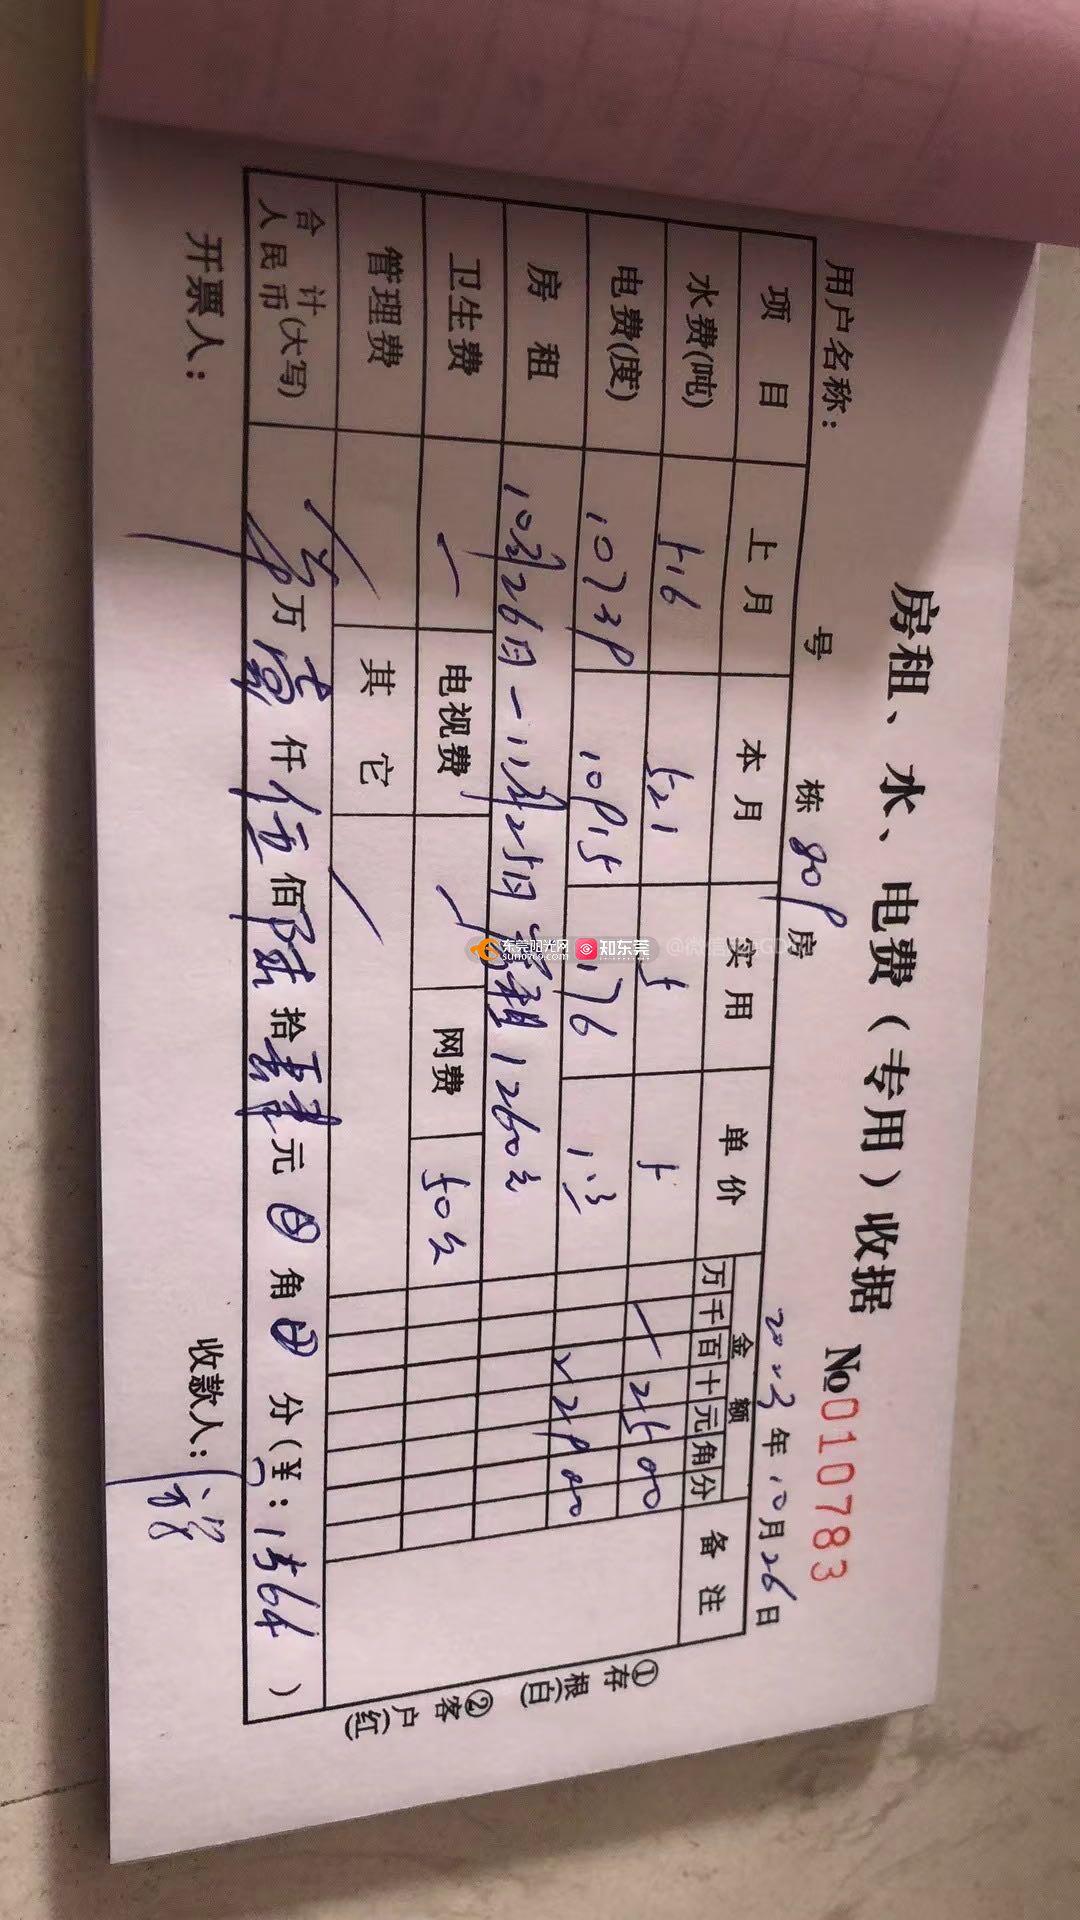 房租、水、电费(专用)收据 №0110783
用户名称: 号 栋 809 房 2023年10月26日
项目 上月 本月 实用 单价 金额 万千百十元角分 备注
水费(吨) 516 521 5 5 2500
电费(度) 10739 10915 176 1.3 22900
房租 10月26日-11月25日 房租1260元
卫生费 电视费 网费 50元
管理费 其它
合计(大写)人民币 零万壹仟伍佰陆拾肆元0角0分(¥:1564)
开票人: 收款人:
①存根(白) ②客户(红)
东莞阳光网
sun0769.com
知东莞